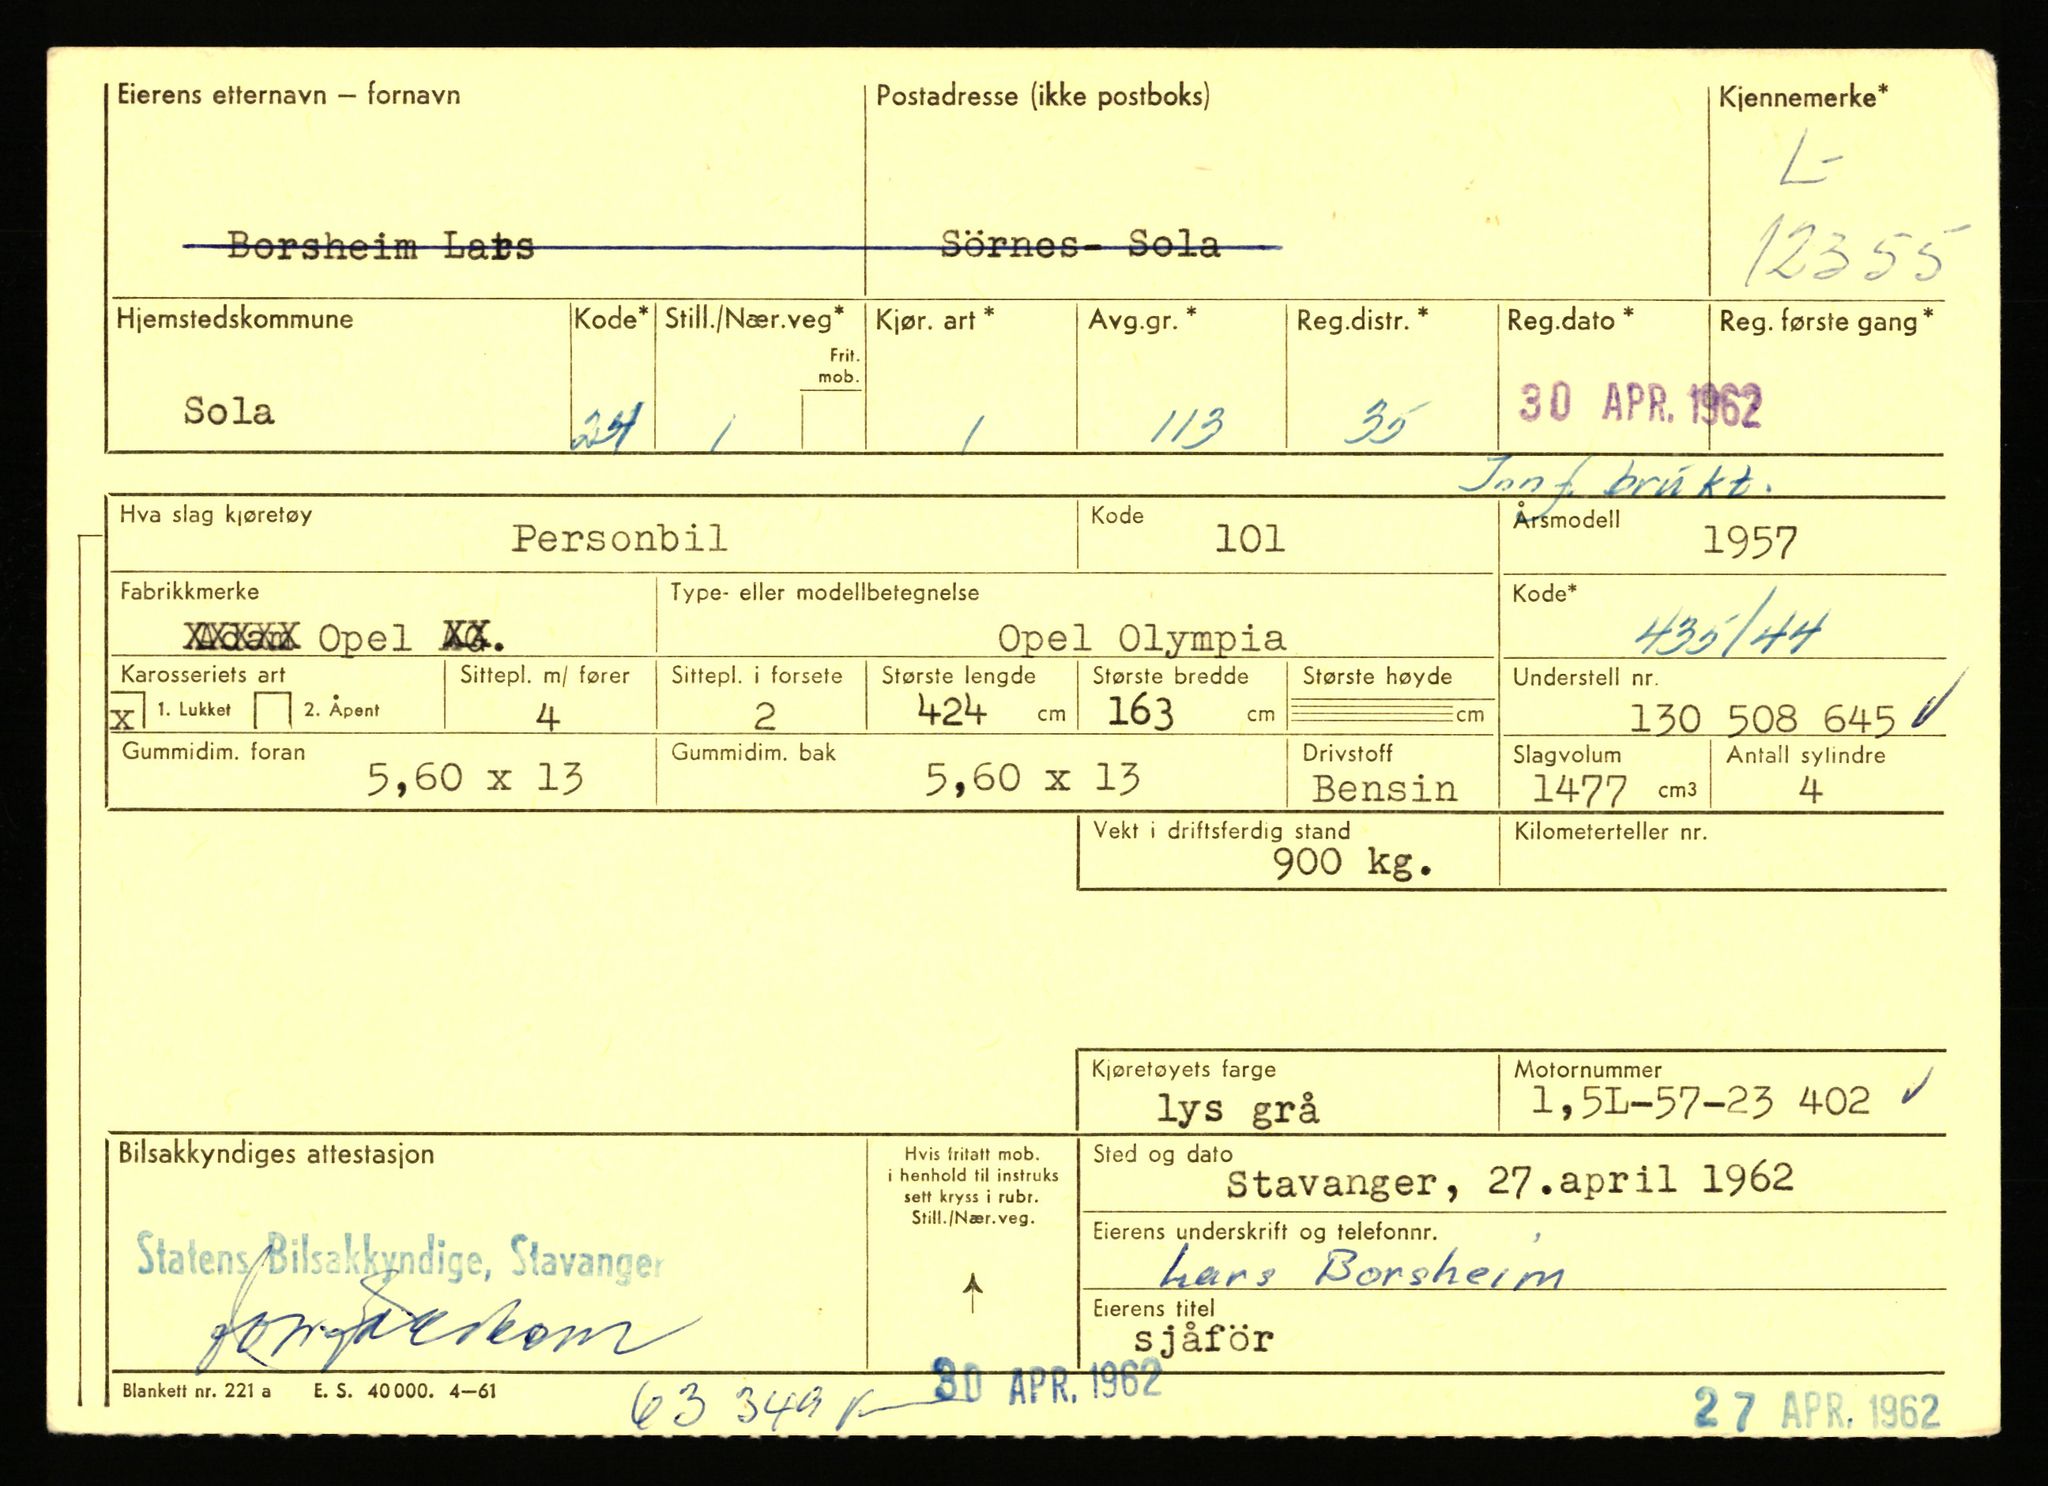 Eierens etternavn – fornavn
Postadresse (ikke postboks)
Kjennemerke*
L-
12355
Borsheim Lars
Sörnes- Sola
Hjemstedskommune
Kode*
Still./Nær.veg*
Frit. mob.
Kjør. art*
Avg.gr.*
Reg.distr.*
Reg.dato*
Reg. første gang*
Sola
24
1
1
113
35
30 APR. 1962
Innf. brukt.
Hva slag kjøretøy
Personbil
Kode
101
Årsmodell
1957
Fabrikkmerke
Adam Opel AG.
Type- eller modellbetegnelse
Opel Olympia
Kode*
435/44
Karosseriets art
x 1. Lukket 2. Åpent
Sittepl. m/ fører
4
Sittepl. i forsete
2
Største lengde
424 cm
Største bredde
163 cm
Største høyde
cm
Understell nr.
130 508 645
Gummidim. foran
5,60 x 13
Gummidim. bak
5,60 x 13
Drivstoff
Bensin
Slagvolum
1477 cm3
Antall sylindre
4
Vekt i driftsferdig stand
900 kg.
Kilometerteller nr.
Kjøretøyets farge
lys grå
Motornummer
1,5L-57-23 402
Bilsakkyndiges attestasjon
Statens Bilsakkyndige, Stavanger
Hvis fritatt mob.
i henhold til instruks
sett kryss i rubr.
Still./Nær.veg.
Sted og dato
Stavanger, 27.april 1962
Eierens underskrift og telefonnr.
Lars Borsheim
Eierens titel
sjåför
Blankett nr. 221 a E. S. 40 000. 4–61
63 349
30 APR. 1962
27 APR. 1962